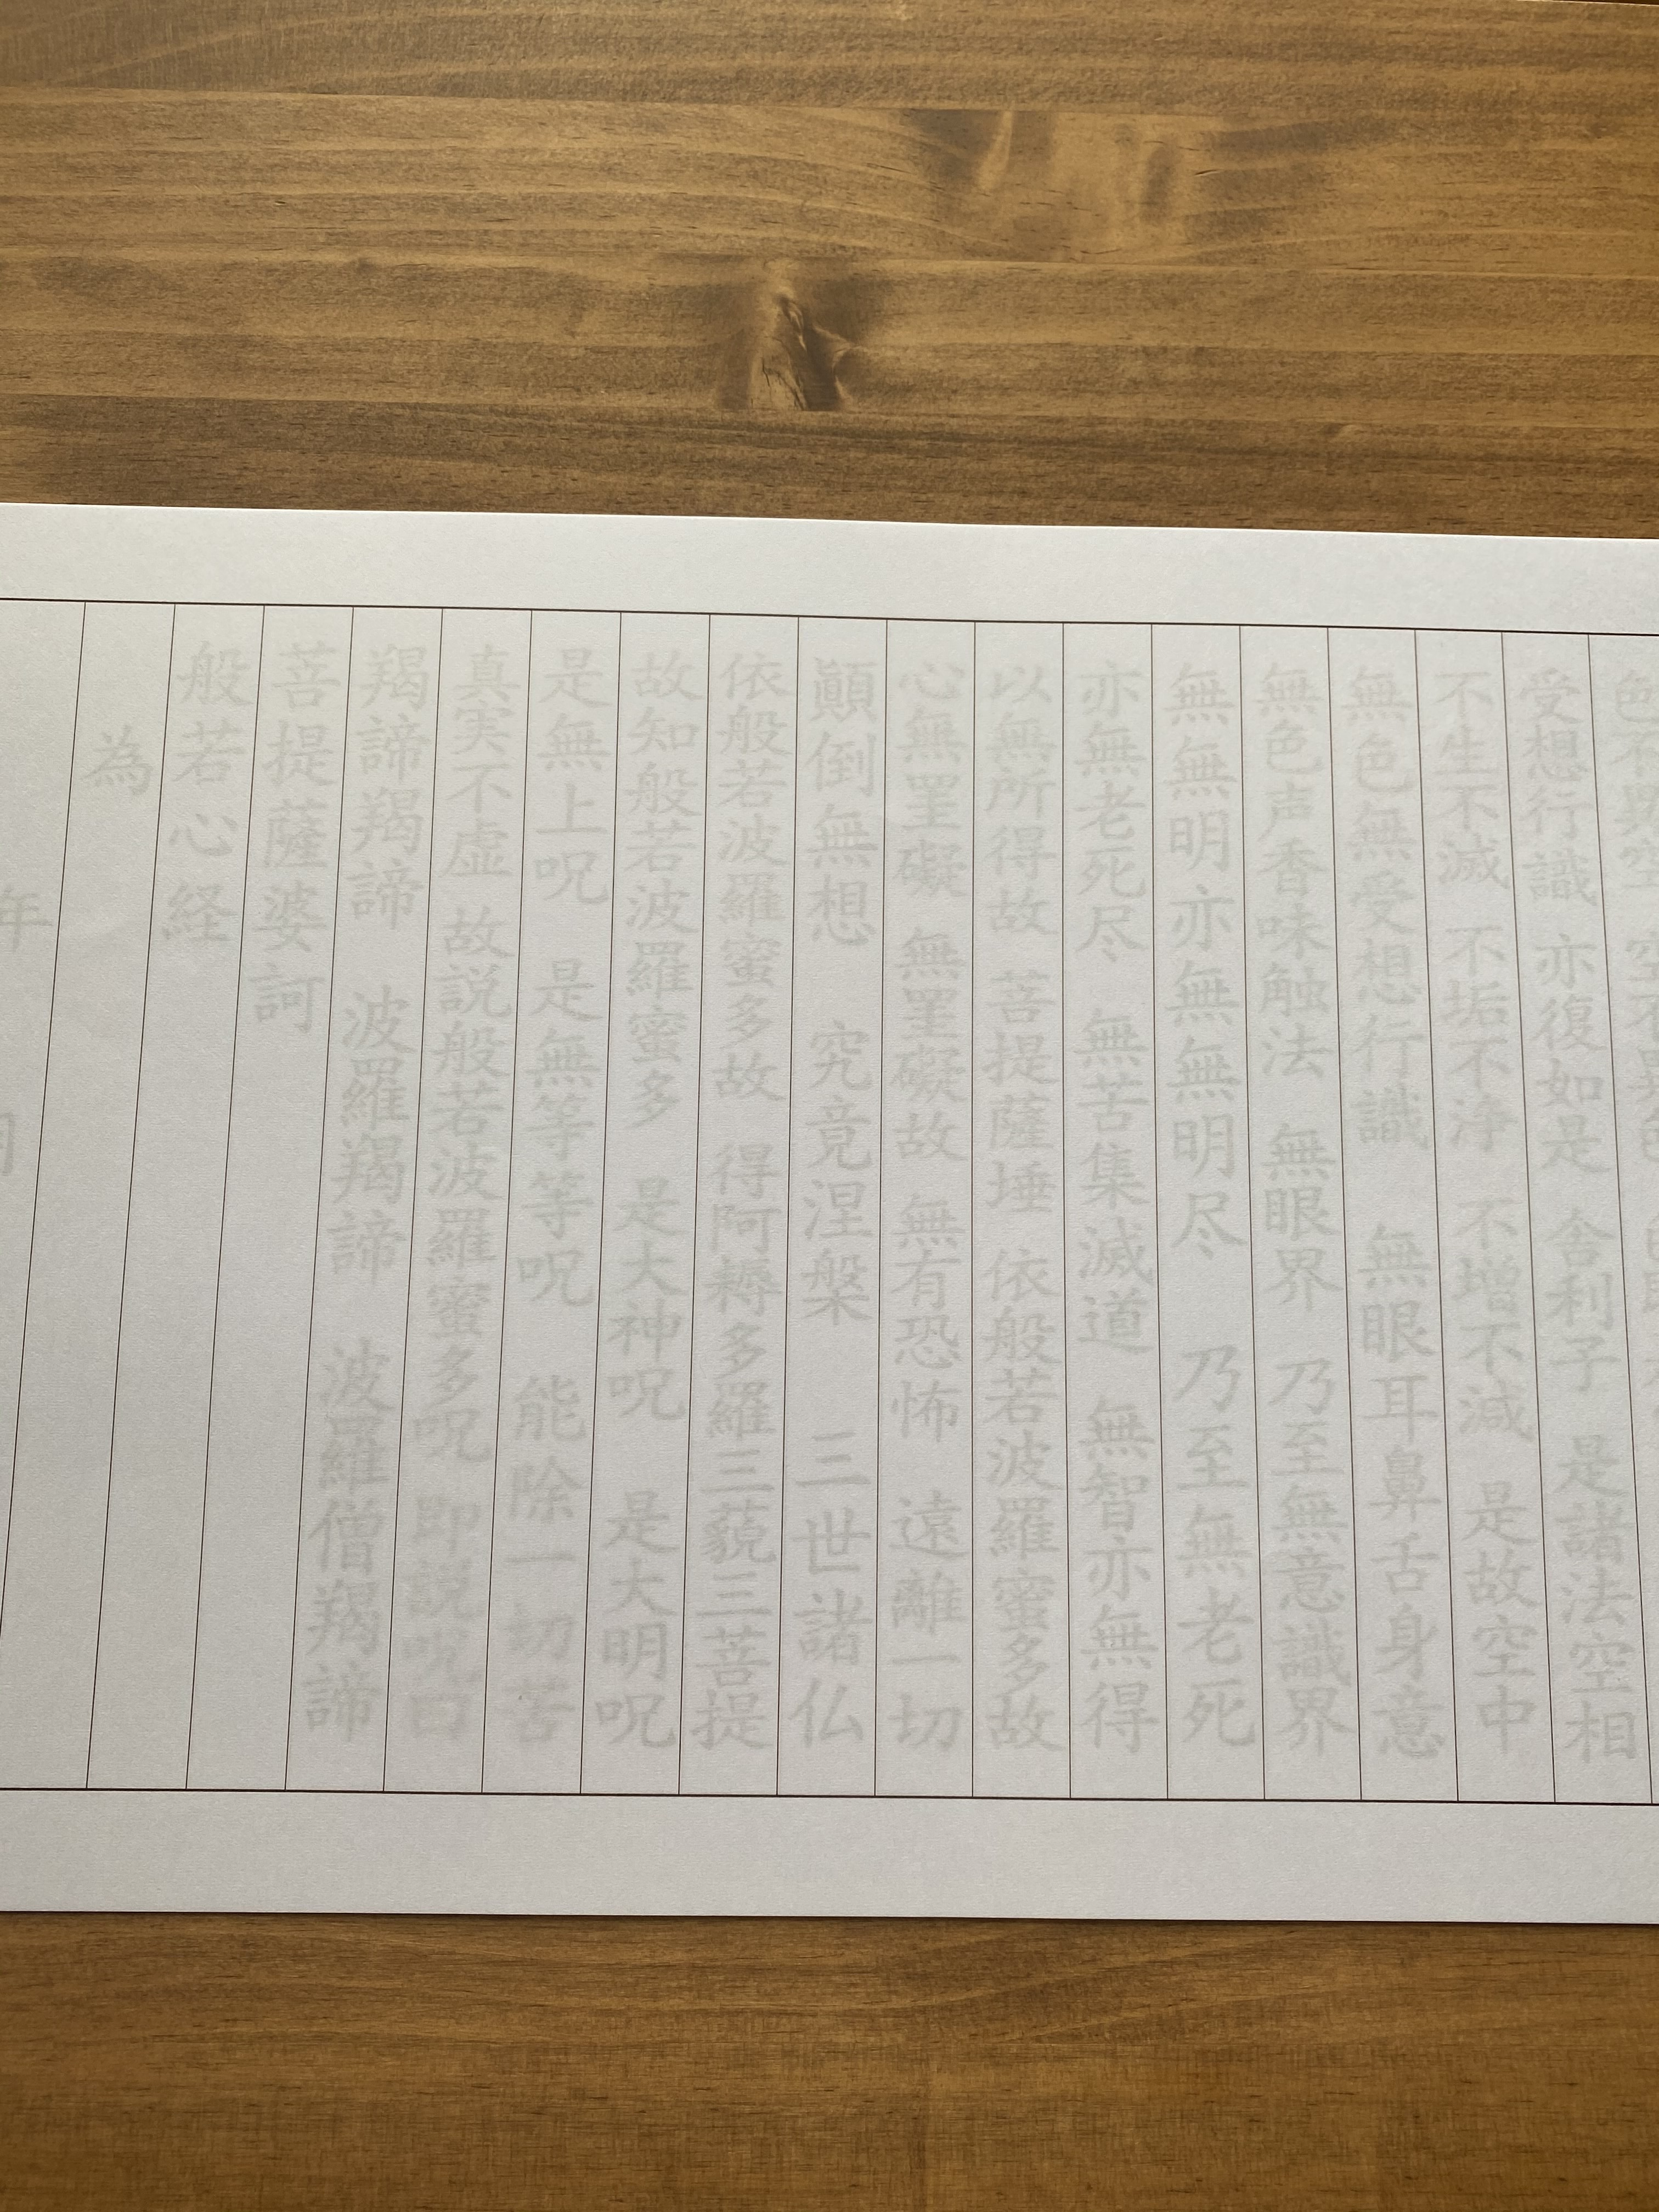 色不異空　空不異色
受想行識　亦復如是　舎利子　是諸法空相
不生不滅　不垢不浄　不増不減　是故空中
無色無受想行識　無眼耳鼻舌身意
無色声香味触法　無眼界　乃至無意識界
無無明亦無無明尽　乃至無老死
亦無老死尽　無苦集滅道　無智亦無得
以無所得故　菩提薩埵　依般若波羅蜜多故
心無罣礙　無罣礙故　無有恐怖　遠離一切
顚倒無想　究竟涅槃　三世諸仏
依般若波羅蜜多故　得阿耨多羅三藐三菩提
故知般若波羅蜜多　是大神呪　是大明呪
是無上呪　是無等等呪　能除一切苦
真実不虚　故説般若波羅蜜多呪　即説呪曰
羯諦羯諦　波羅羯諦　波羅僧羯諦
菩提薩婆訶
般若心経
為
年